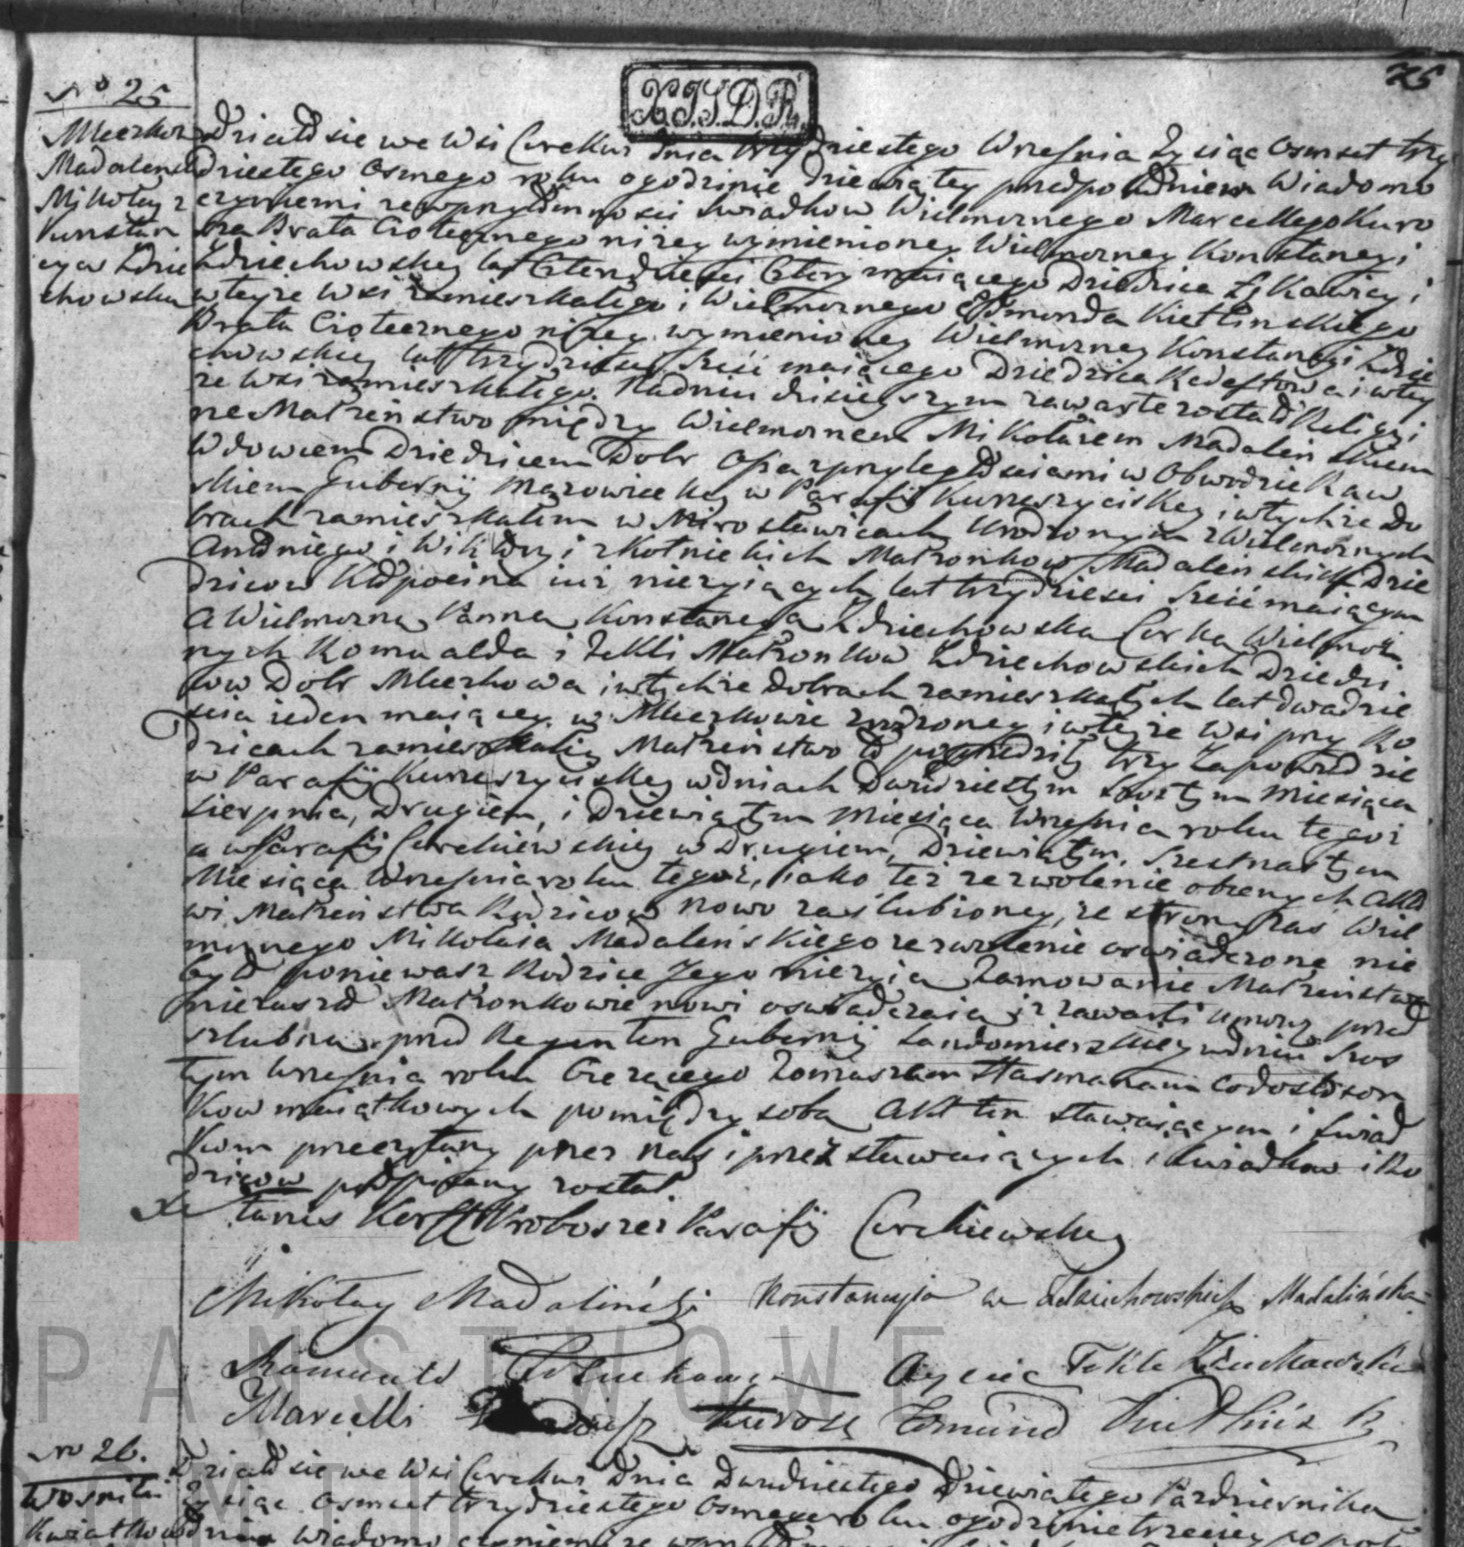 75
X.I.S.D.R.
No 25
Mleczków
Madaleński
Mikołay z
Konstan
cyą Zdzie
chowską
Działo się we Wsi Cerekwi Dnia trzydziestego Września Tysiąc Osmset trzy
dziestego Osmego roku o godzinie dziewiątey przed południem Wiadomo
czyniemy ze w przytomności Swiadkow Wielmoznego Marcellego Kuro
sza Brata Ciotecznego nizey wymienioney Wielmozney Konstancyi
Zdziechowskiey lat Czterdzieści Cztery maiącego Dziedzica i
w teyże Wsi zamieszkałego i Wielmoznego Edmunda Kietlinskiego
Brata Ciotecznego nizey wymienioney Wielmozney Konstancyi Zdzie
chowskiey lat trzydzieści Sześć maiącego Dziedzica i w tey
ze wsi zamieszkałego. Na dniu dzisieyszym zawarte zostało Religyi
ne Małżeństwo między Wielmoznem Mikołaiem Madaleńskiem
Wdowcem Dziedzicem Dobr Ossa z przyległościami w Obwodzie Raw
skiem Guberny Mazowieckiey w Parafy i w tychze do
brach zamieszkałem w Mirosławicach Urodzonym z Wielmoznych
Antoniego i Wiktoryi z Małżonkow Madaleńskich Dzie
dzicow iuż nieżyiących, lat trzydzieści Sześć maiącym
a Wielmożną Panną Konstancyą Zdziechowską Corką Wielmoż
nych Romualda i Tekli Małżonkow Zdziechowskich Dziedzi
cow Dobr Mleczkowa i w tychże dobrach zamieszkałych lat dwadzie
scia ieden maiącey, w Mleczkowie zrodzoney i w teyże Wsi przy Ro
dzicach zamieszkałey Małżeństwo to poprzedziły trzy Zapowiedzie
w Parafy w dniach Dwudziestym Szostym Miesiąca
Sierpnia, Drugiem, i Dziewiątym Miesiąca Września roku tegoż
a w Parafy Cerekiewskiey w Drugiem, Dziewiątym, Szesnastym
Miesiąca Września roku tegoż, iako też zezwolenie obecnych Akto
wi Małżeństwa Rodzicow Nowo zaślubioney, ze strony zaś Wiel
moznego Mikołaia Madaleńskiego zezwolenie oswiadczone nie
było ponieważ Rodzice Jego nieżyią Tamowanie Małżeństwa
nie zaszło Małżonkowie nowi oswiadczaią iż zawarli umowę przed
szlubną przed Regentem Guberny Sandomierskiey w dniu Szos
tym Września roku bieżącego Tomaszem co do stosun
kow maiątkowych pomiędzy sobą Akt ten stawaiącym i Swiad
kom przeczytany przez Nas i przez stawaiących i Swiadkow i Ro
dzicow podpisany został
Xe Kerst Proboszcz Parafy Cerekiewskiey
Mikołay Madaliński Konstancyia z Zdziechowskich Madalińska
Romuald Zdziechowski Oyciec Tekla Zdziechowska
Marcelli Kurosz Edmund Kietliński
PAŃSTWOWE
No 26.
Wosniki
Działo się we Wsi Cerekwi Dnia Dwudziestego Dziewiątego Pazdziernika
Tysiąc Osmset trzydziestego Osmego roku o godzinie trzeciey po poł
dniu Wiadomo czyniemy ze w